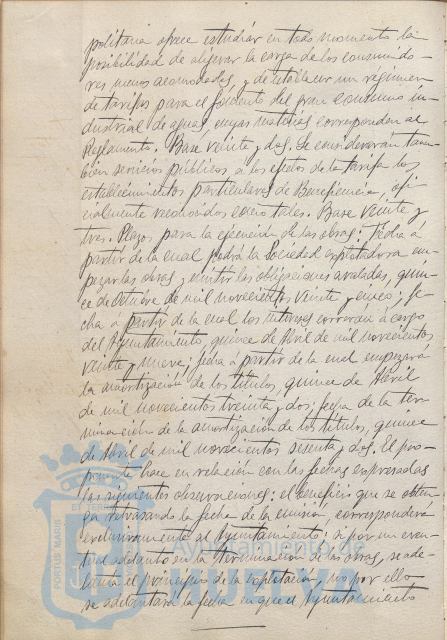 politana ofrece estudiar en todo momento la
posibilidad de aligerar la carga de los consumido-
res menos acomodados, y de establecer un régimen
de tarifas para el fomento del gran consumo in-
dustrial de aguas, cuyas materias corresponden al
Reglamento. Base veinte y dos. Se considerarán tam-
bién servicios públicos a los efectos de la tarifa los
establecimientos particulares de Beneficencia, ofi-
cialmente reconocidos como tales. Base veinte y
tres. Plazos para la ejecución de las obras: Fecha á
partir de la cual podrá la Sociedad explotadora em-
pezar las obras y emitir las obligaciones avaladas, quin-
ce de Octubre de mil novecientos veinte y cinco; fe-
cha á partir de la cual los intereses correrán á cargo
del Ayuntamiento, quince de Abril de mil novecientos
veinte y nueve; fecha á partir de la cual empezará
la amortización de los títulos, quince de Abril
de mil novecientos treinta y dos; fecha de la ter-
minación de la amortización de los títulos, quince
de Abril de mil novecientos sesenta y dos. El pro-
ponente hace en relación con las fechas expresadas
las siguientes observaciones: el beneficio que se obten-
ga retrasando la fecha de la emisión, corresponderá
exclusivamente al Ayuntamiento; si por un even-
tual adelanto en la terminación de las obras, se ade-
lanta el principio de la explotación, no por ello
se adelantará la fecha en que el Ayuntamiento
PORTUS MARIS
ET TERRAE
Ayuntamiento de
HUELVA